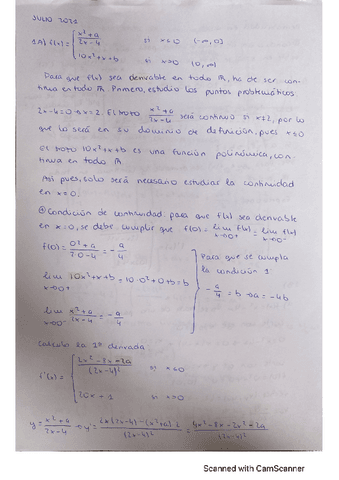 JULIO 2021
1.A) f(x) = { x²+a / 2x-4 si x≤0 (-∞, 0]
10x²+x+b si x>0 (0, ∞)
Para que f(x) sea derivable en todo ℝ, ha de ser con-
tinua en todo ℝ. Primero, estudio los puntos problemáticos
2x-4=0 → x=2. El trozo x²+a / 2x-4 será continuo si x≠2, por lo
que lo será en su dominio de definición, pues x≤0
El trozo 10x²+x+b es una función polinómica, con-
tinua en todo ℝ
Así pues, solo será necesario estudiar la continuidad
en x=0.
① Condición de continuidad. para que f(x) sea derivable
en x=0, se debe cumplir que f(0) = lim x→0+ f(x) = lim x→0- f(x)
f(0) = 0²+a / 2·0-4 = -a/4
Para que se cumpla
la condición 1:
lim x→0+ 10x²+x+b = 10·0²+0+b = b
-a/4 = b → a = -4b
lim x→0- x²+a / 2x-4 = -a/4
Calculo la 1ª derivada
f'(x) = { 2x²-8x-2a / (2x-4)² si x≤0
20x+1 si x>0
y = x²+a / 2x-4 → y' = 2x(2x-4)-(x²+a)·2 / (2x-4)² = 4x²-8x-2x²-2a / (2x-4)²
Scanned with CamScanner